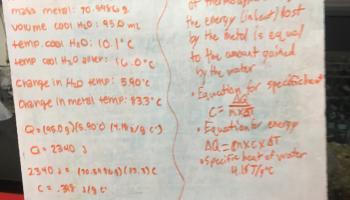 mass metal: 70.9486g
volume cool H2O: 95.0 mL
temp. cool H2O: 10.1°C
temp cool H2O after: 16.0°C
change in H2O temp: 5.90°C
Change in metal temp: 83.3°C
Q=(95.0g)(5.90°C)(4.18 J/g C°)
Q= 2340 J
2340 J =
the energy (in heat) lost
by the metal is equal
to the amount gained
by the water
• Equation for specific heat
C= ΔQ / m×ΔT
• Equation for energy
ΔQ = m×c×ΔT
• specific heat of water
4.18 J/g°C